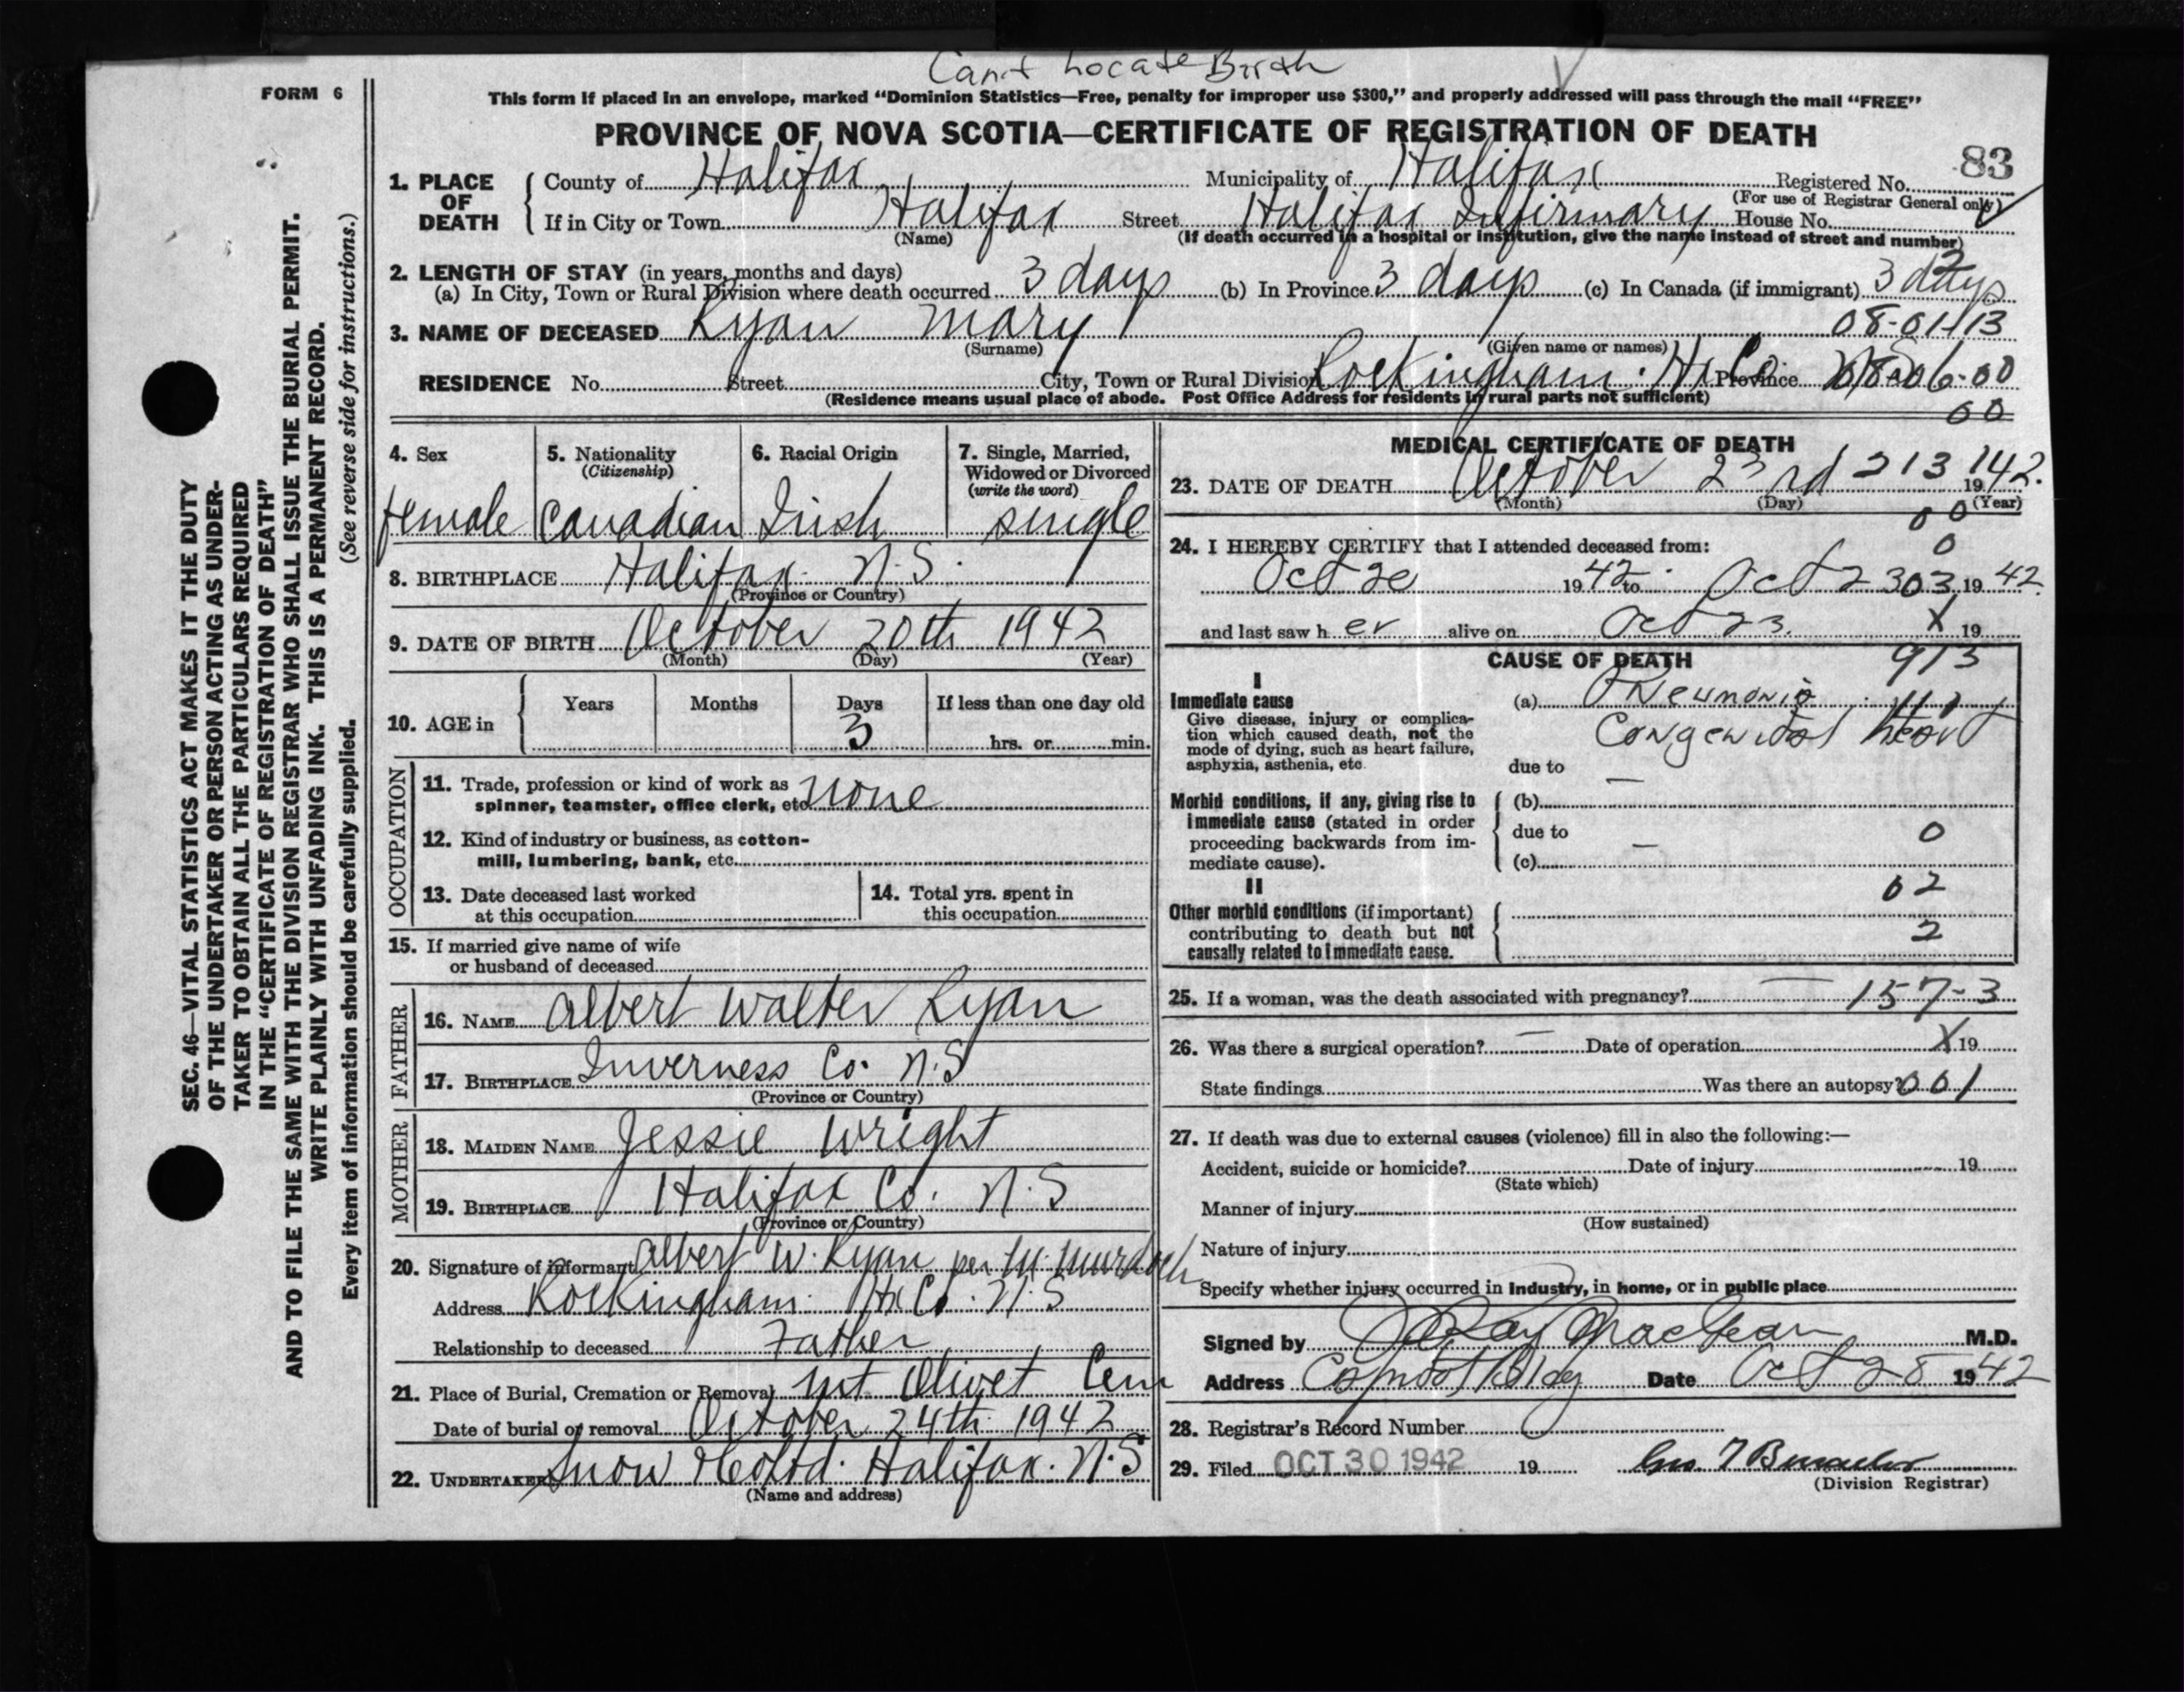 Can't Locate Birth
FORM 6
This form if placed in an envelope, marked "Dominion Statistics—Free, penalty for improper use $300," and properly addressed will pass through the mail "FREE"
PROVINCE OF NOVA SCOTIA—CERTIFICATE OF REGISTRATION OF DEATH
83
1. PLACE OF DEATH County of Halifax Municipality of Halifax Registered No.
(For use of Registrar General only)
If in City or Town Halifax Street Halifax Infirmary House No.
(Name) (If death occurred in a hospital or institution, give the name instead of street and number)
2. LENGTH OF STAY (in years, months and days)
(a) In City, Town or Rural Division where death occurred 3 days (b) In Province 3 days (c) In Canada (if immigrant) 3 days
3. NAME OF DECEASED Ryan Mary 08-01-13
(Surname) (Given name or names)
RESIDENCE No. Street City, Town or Rural Division Rockingham. Hx Co. Province
(Residence means usual place of abode. Post Office Address for residents in rural parts not sufficient)
00
4. Sex female
5. Nationality (Citizenship) Canadian
6. Racial Origin Irish
7. Single, Married, Widowed or Divorced (write the word) single
8. BIRTHPLACE Halifax N.S.
(Province or Country)
9. DATE OF BIRTH October 20th 1942
(Month) (Day) (Year)
10. AGE in Years Months Days 3 If less than one day old hrs. or min.
OCCUPATION
11. Trade, profession or kind of work as spinner, teamster, office clerk, etc. None
12. Kind of industry or business, as cotton-mill, lumbering, bank, etc.
13. Date deceased last worked at this occupation
14. Total yrs. spent in this occupation
15. If married give name of wife or husband of deceased
FATHER
16. NAME Albert Walter Ryan
17. BIRTHPLACE Inverness Co. N.S
(Province or Country)
MOTHER
18. MAIDEN NAME Jessie Wright
19. BIRTHPLACE Halifax Co. N.S
(Province or Country)
20. Signature of informant Albert W. Ryan per M. Murdoch
Address Rockingham Hx Co. N.S
Relationship to deceased Father
21. Place of Burial, Cremation or Removal Mt Olivet Cem
Date of burial or removal October 24th 1942
22. UNDERTAKER Snow & Co Ltd. Halifax. N.S
(Name and address)
MEDICAL CERTIFICATE OF DEATH
23. DATE OF DEATH October 23rd 213 1942.
(Month) (Day) (Year)
00
24. I HEREBY CERTIFY that I attended deceased from:
0
Oct 20 1942 to Oct 23 03 19 42.
and last saw her alive on Oct 23. X 19
CAUSE OF DEATH 913
I
Immediate cause
Give disease, injury or complication which caused death, not the mode of dying, such as heart failure, asphyxia, asthenia, etc.
(a) Pneumonia
Congenital heart
due to —
Morbid conditions, if any, giving rise to immediate cause (stated in order proceeding backwards from immediate cause).
(b)
due to — 0
(c)
II 02
Other morbid conditions (if important) contributing to death but not causally related to immediate cause.
2
25. If a woman, was the death associated with pregnancy? — 157-3
26. Was there a surgical operation? — Date of operation X 19
State findings Was there an autopsy? 001
27. If death was due to external causes (violence) fill in also the following:—
Accident, suicide or homicide? Date of injury 19
(State which)
Manner of injury
(How sustained)
Nature of injury
Specify whether injury occurred in industry, in home, or in public place
Signed by M.D.
Address Bldg Date Oct 28 1942
28. Registrar's Record Number
29. Filed OCT 30 1942 19
(Division Registrar)
SEC. 46—VITAL STATISTICS ACT MAKES IT THE DUTY
OF THE UNDERTAKER OR PERSON ACTING AS UNDER-
TAKER TO OBTAIN ALL THE PARTICULARS REQUIRED
IN THE "CERTIFICATE OF REGISTRATION OF DEATH"
AND TO FILE THE SAME WITH THE DIVISION REGISTRAR WHO SHALL ISSUE THE BURIAL PERMIT.
WRITE PLAINLY WITH UNFADING INK. THIS IS A PERMANENT RECORD.
Every item of information should be carefully supplied. (See reverse side for instructions.)